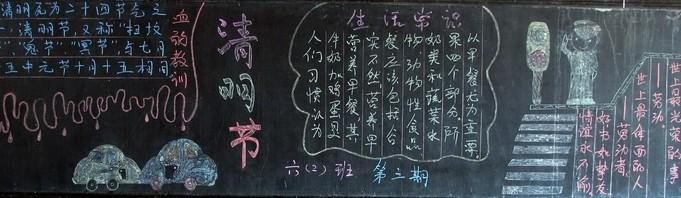 清明尤为二十四节气之
一.清明节,又称"扫坟
"、"鬼节""冥节",与七月
五中元节十月十五相同
血的教训
清明节
生活常识
人们习惯认为
牛奶加鸡蛋是
营养早餐,其
实不然营养早
餐应该包括谷
物,动物性食品
奶类和蔬菜水
果四个部分,所
以早餐尤为重要.
六(2)班 第三期
世上最光荣的事
——劳动.
世上最体面的人
——劳动者.
好书如挚友
情谊永不渝